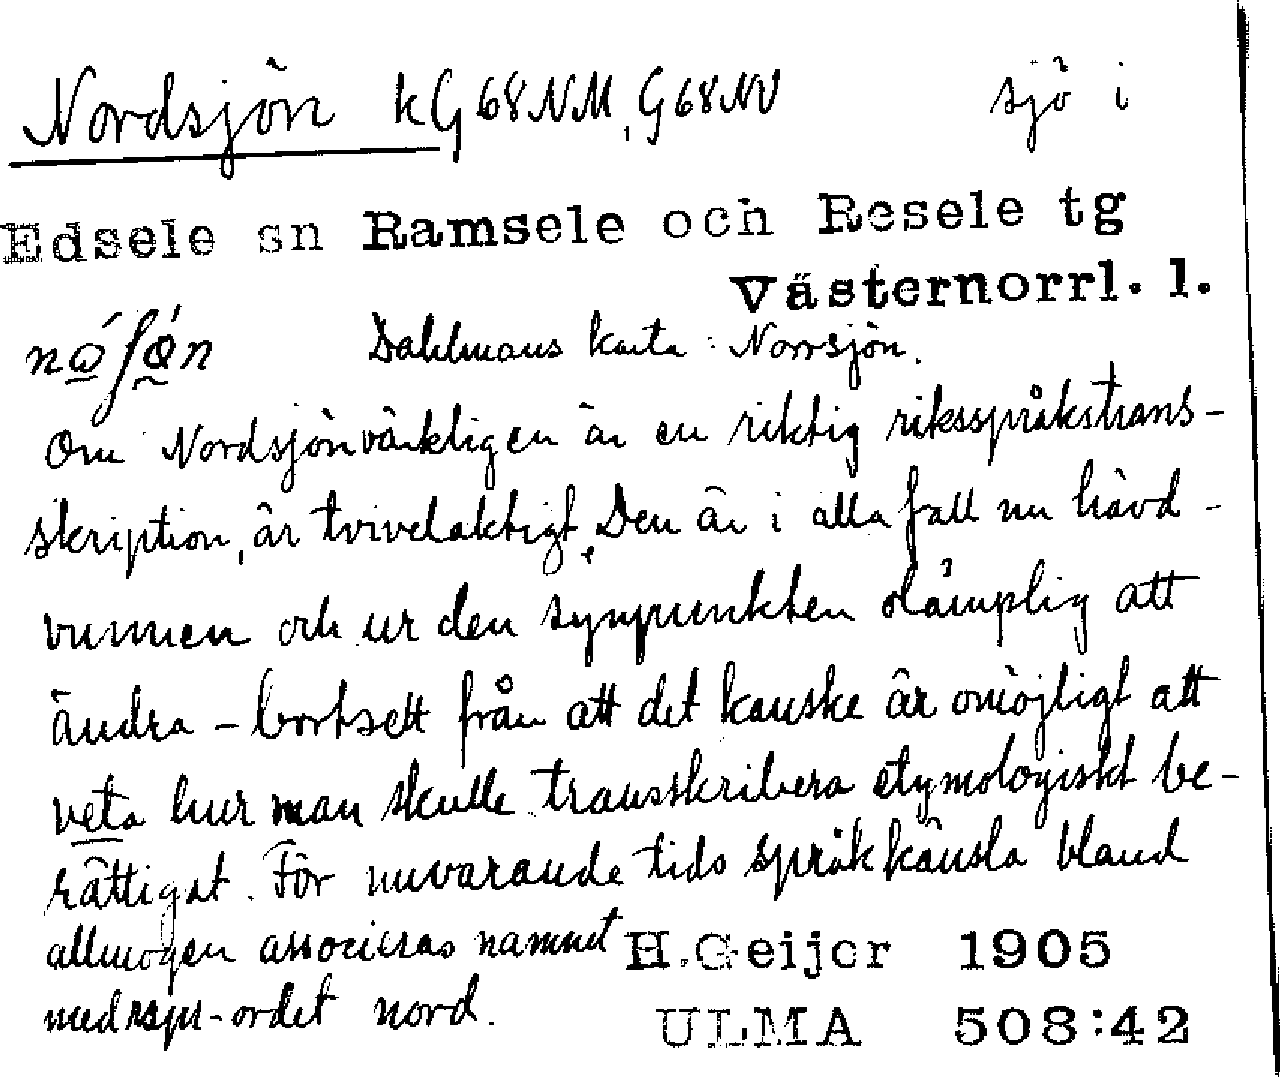 Nordsjön kG68NM, G68NV sjö i
Edsele sn Ramsele och Resele tg
Västernorrl. l.
Dahlmans karta: Norrsjön.
Om Nordsjön värkligen är en riktig riksspråkstrans-
skription, är tvivelaktigt. Den är i alla fall nu hävd-
vunnen och ur den synpunkten olämplig att
ändra – bortsett från att det kanske är omöjligt att
veta hur man skulle transskribera etymologiskt be-
rättigat. För nuvarande tids språkkänsla bland
allmogen associeras namnet H. Geijer 1905
med rspr-ordet nord. ULMA 508:42